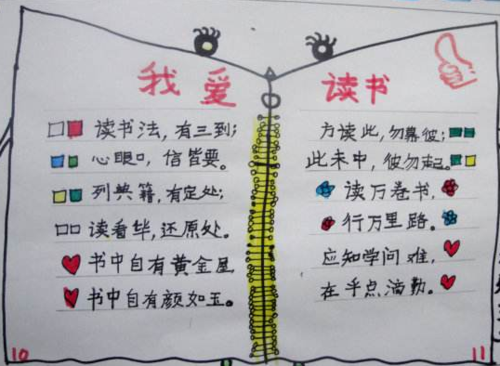 我爱
读书法,有三到;
心眼口,信皆要。
列典籍,有定处;
读看毕,还原处。
书中自有黄金屋
书中自有颜如玉。
10
读书
方读此,勿慕彼;
此未中,彼勿起。
读万卷书,
行万里路。
应知学问难,
在乎点滴勤。
11